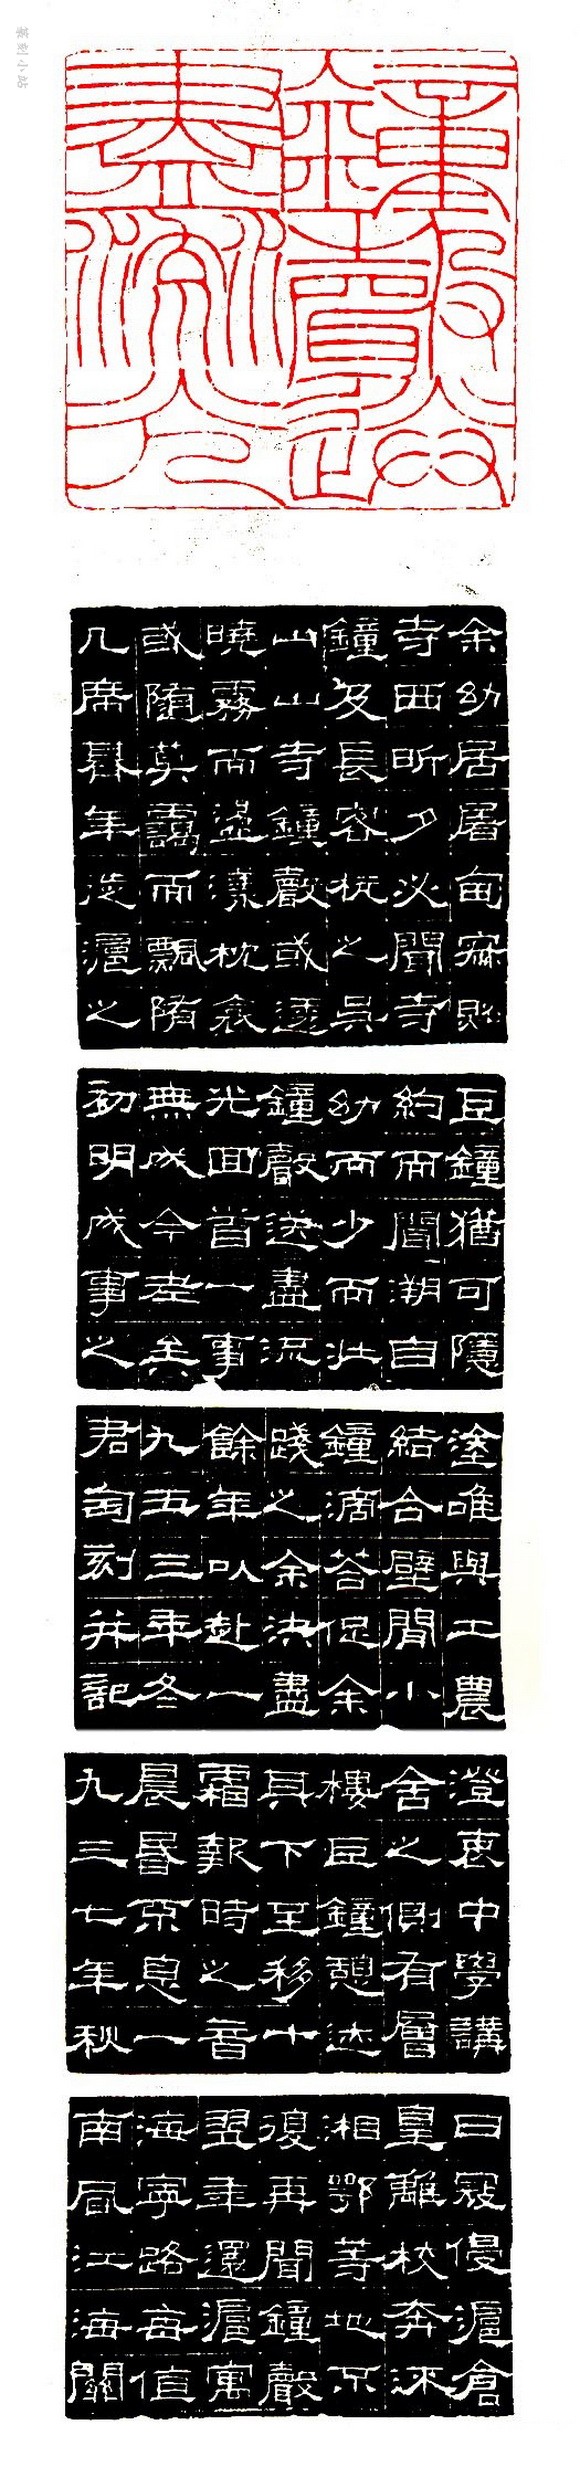 篆刻小站
鐘聲送
盡流光
余幼居屠甸寂照
寺西昕夕必聞寺
鐘及長客杭之吳
山山寺鐘聲或邇
曉霧而盪漾枕衾
或隨莫靄而飄墮
几席曩年徙滬之
巨鐘猶可隱
約而聞溯自
幼而少而壯
鐘聲送盡流
光回首一事
無成今老矣
初明成事之
塗唯與工農
結合壁間小
鐘滴答促余
踐之余決盡
餘年以赴一
九五三年冬
君匋刻并記
澄衷中學講
舍之側有層
樓巨鐘憩迹
其下至移十
霜報時之音
晨昏不息一
九三七年秋
日寇侵滬倉
皇離校奔波
湘鄂等地不
復再聞鐘聲
翌年還滬寓
海寧路值
南向江海關